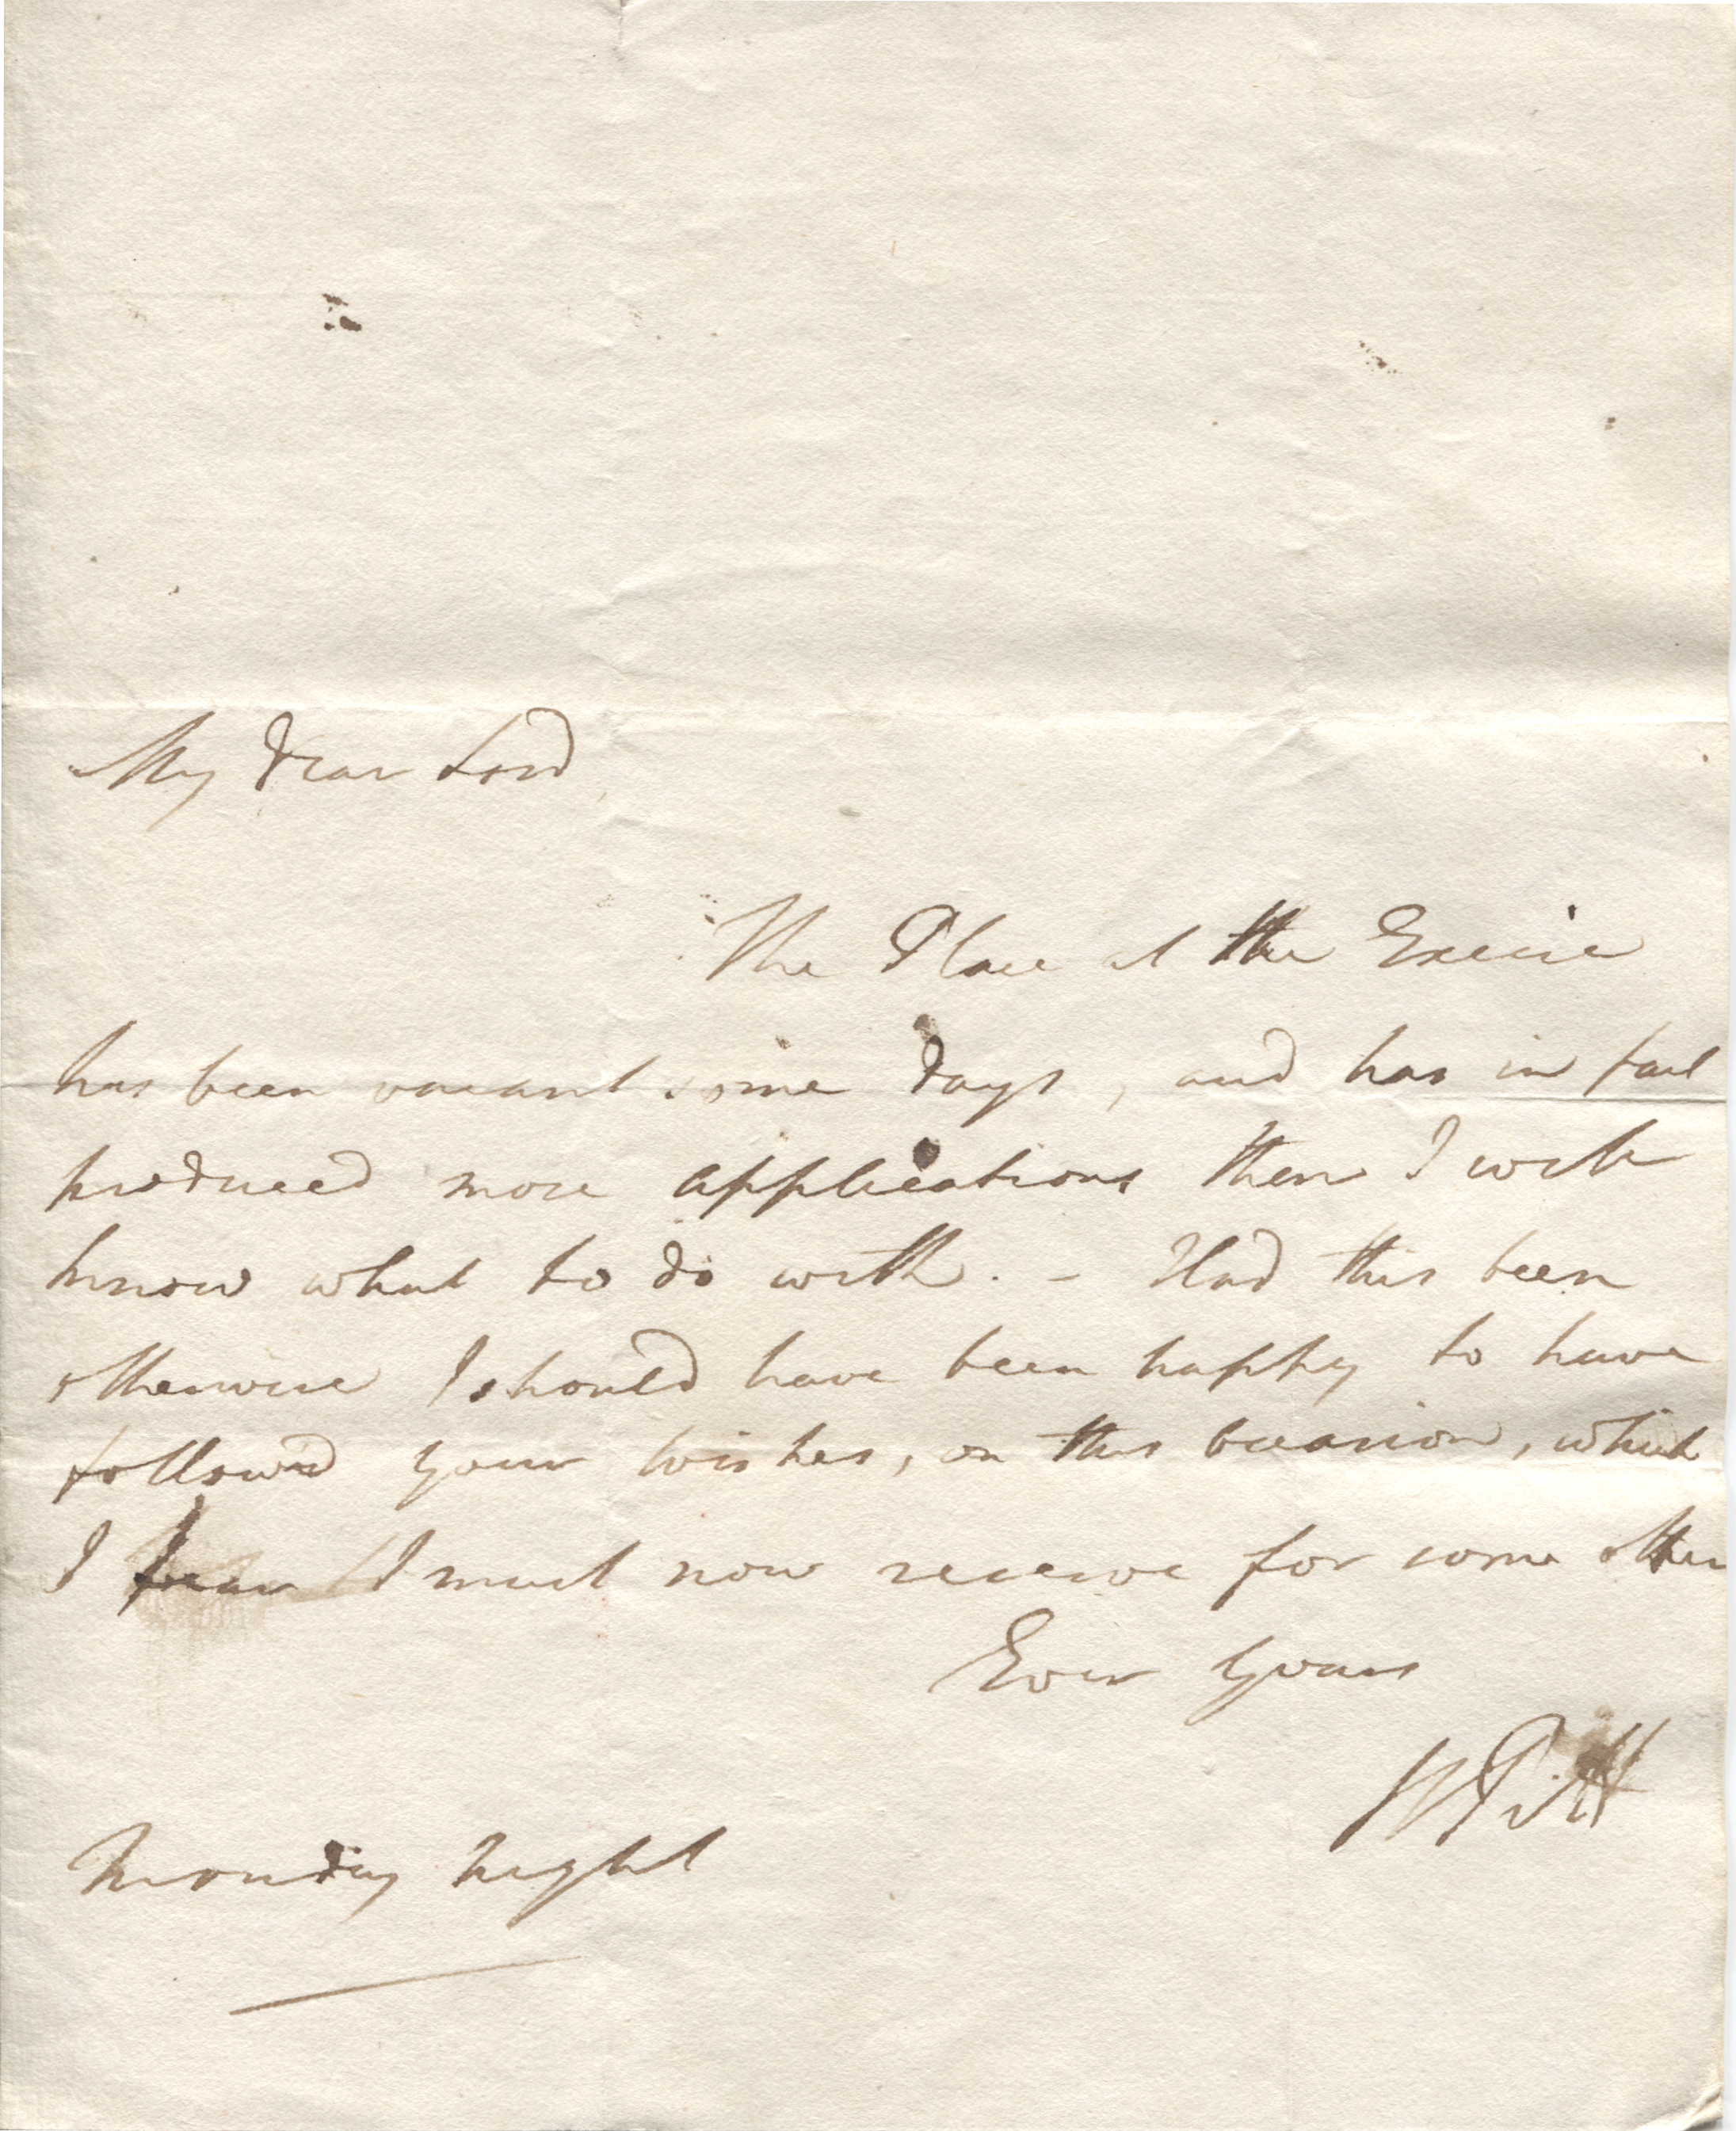 My dear Lord
The Place at the Excise
has been vacant some days, and has in fact
produced more applications than I well
know what to do with. - Had this been
otherwise I should have been happy to have
follow'd your wishes, on this occasion, which
I fear I must now reserve for some other
Ever yours
W Pitt
Monday night